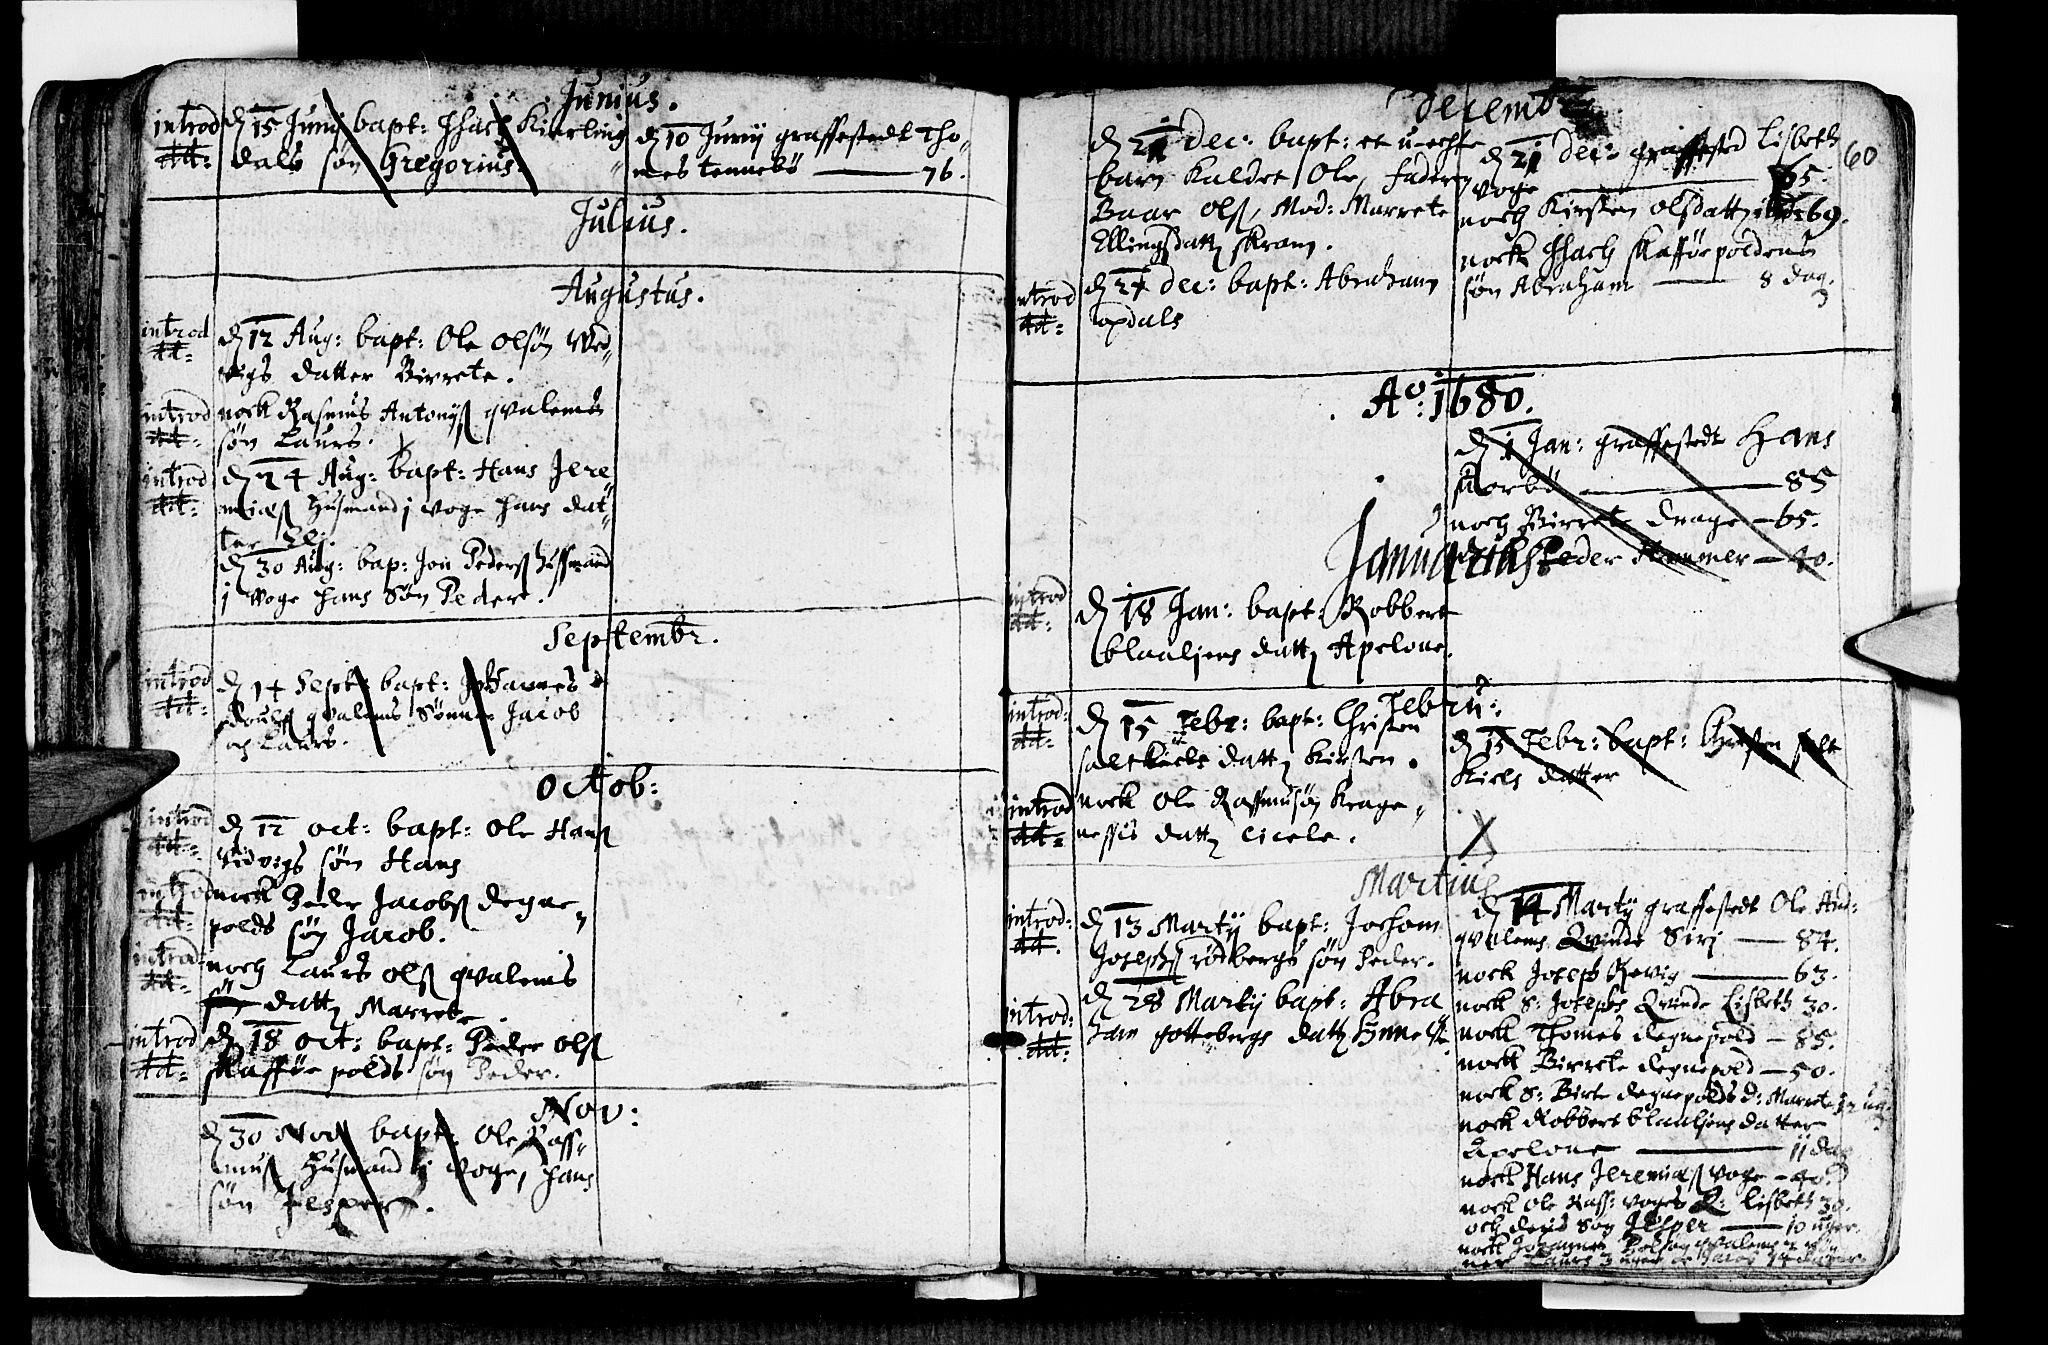 Junius.
introd
d 15 Junij bapt: Jsach Kierling
dals søn Gregorius.
d 10 Junij graffestedt Tho-
mes tennebø — 76.
Julius.
Augustus.
introd
d 12 Aug: bapt: Ole Olsøn
datter Birrete.
introd
nock Rasmus Antonijs qvalems
søn Laurs.
introd
d 24 Aug: bapt: Hans Jere
mies Husmand j voge hans dat-
ter Elj.
d 30 Aug: bap: Jon Peders Hussmand
j Voge hans Søn Peder.
Septembr.
introd
d 14 Sept: bapt: Johannes
qvalems Sønner Jacob
och Laurs.
Octob:
introd
d 12 oct: bapt: Ole Hans
Vidvigs søn Hans
introd
nock Peder Jacobs degne-
polds søn Jacob.
introd
noch Laurs Ols qvalems
søn datt Marrete.
introd
d 18 oct: bapt: Peder Ols
skafføe polds søn Peder.
Nov:
d 30 Nov bapt: Ole Rass-
mus Husmand j voge, hans
søn Jesper.
Decembr
60
d 21 dec: bapt: et u-echte
barn kaldet Ole, fader
Baar Ols, Mod: Marrete
Ellingsdatt skram.
introd
d 27 dec: bapt: Abraham
opdals
d 21 dec: graffested Lisbeth
voge — 65.
noch Kirsten olsdatt 69.
nock Jsach skafføepoldens
søn Abraham — 8 dag.
Ao: 1680.
d 1 Jan: graffestedt Hans
— 85
noch Birrete drage — 65.
Peder Hammer — 40.
Januarius.
introd
d 18 Jan: bapt: Robbert
blaaljens datt Apelone.
Febru:
introd:
d 15 Febr: bapt: Christen
saltkiels datt Kirsten.
introd
nock Ole Rassmusøn Krage-
nessis datt Cicele.
d 15 Febr: bapt: Christen salt
kiels datter
X
Martius
introd:
d 13 Martij bapt: Jochom
Josephs rødbergs søn Peder.
introd:
d 28 Martij bapt: Abra
ham gottebergs datt
d 14 Martij graffestedt Ole And:
qvalems Qvinde Sirj — 84.
nock Joseph Revig — 63.
nock S: Josephs Qvinde Lisbeth 30.
nock Thomes degnepold — 85.
nock Birrete degnepold — 50.
nock S: Birte degnepolds d: Marrete 12 ug.
nock Robbert blaaljens datter
Apelone — 11 dag
nock Hans Jeremies voge — 40.
nock Ole Rass: voges Q: Lisbeth 30.
och deris søn Jesper — 10 uger.
nock Johannes qvalems
ner Laurs 3 uger oc Jacob 14 dager.